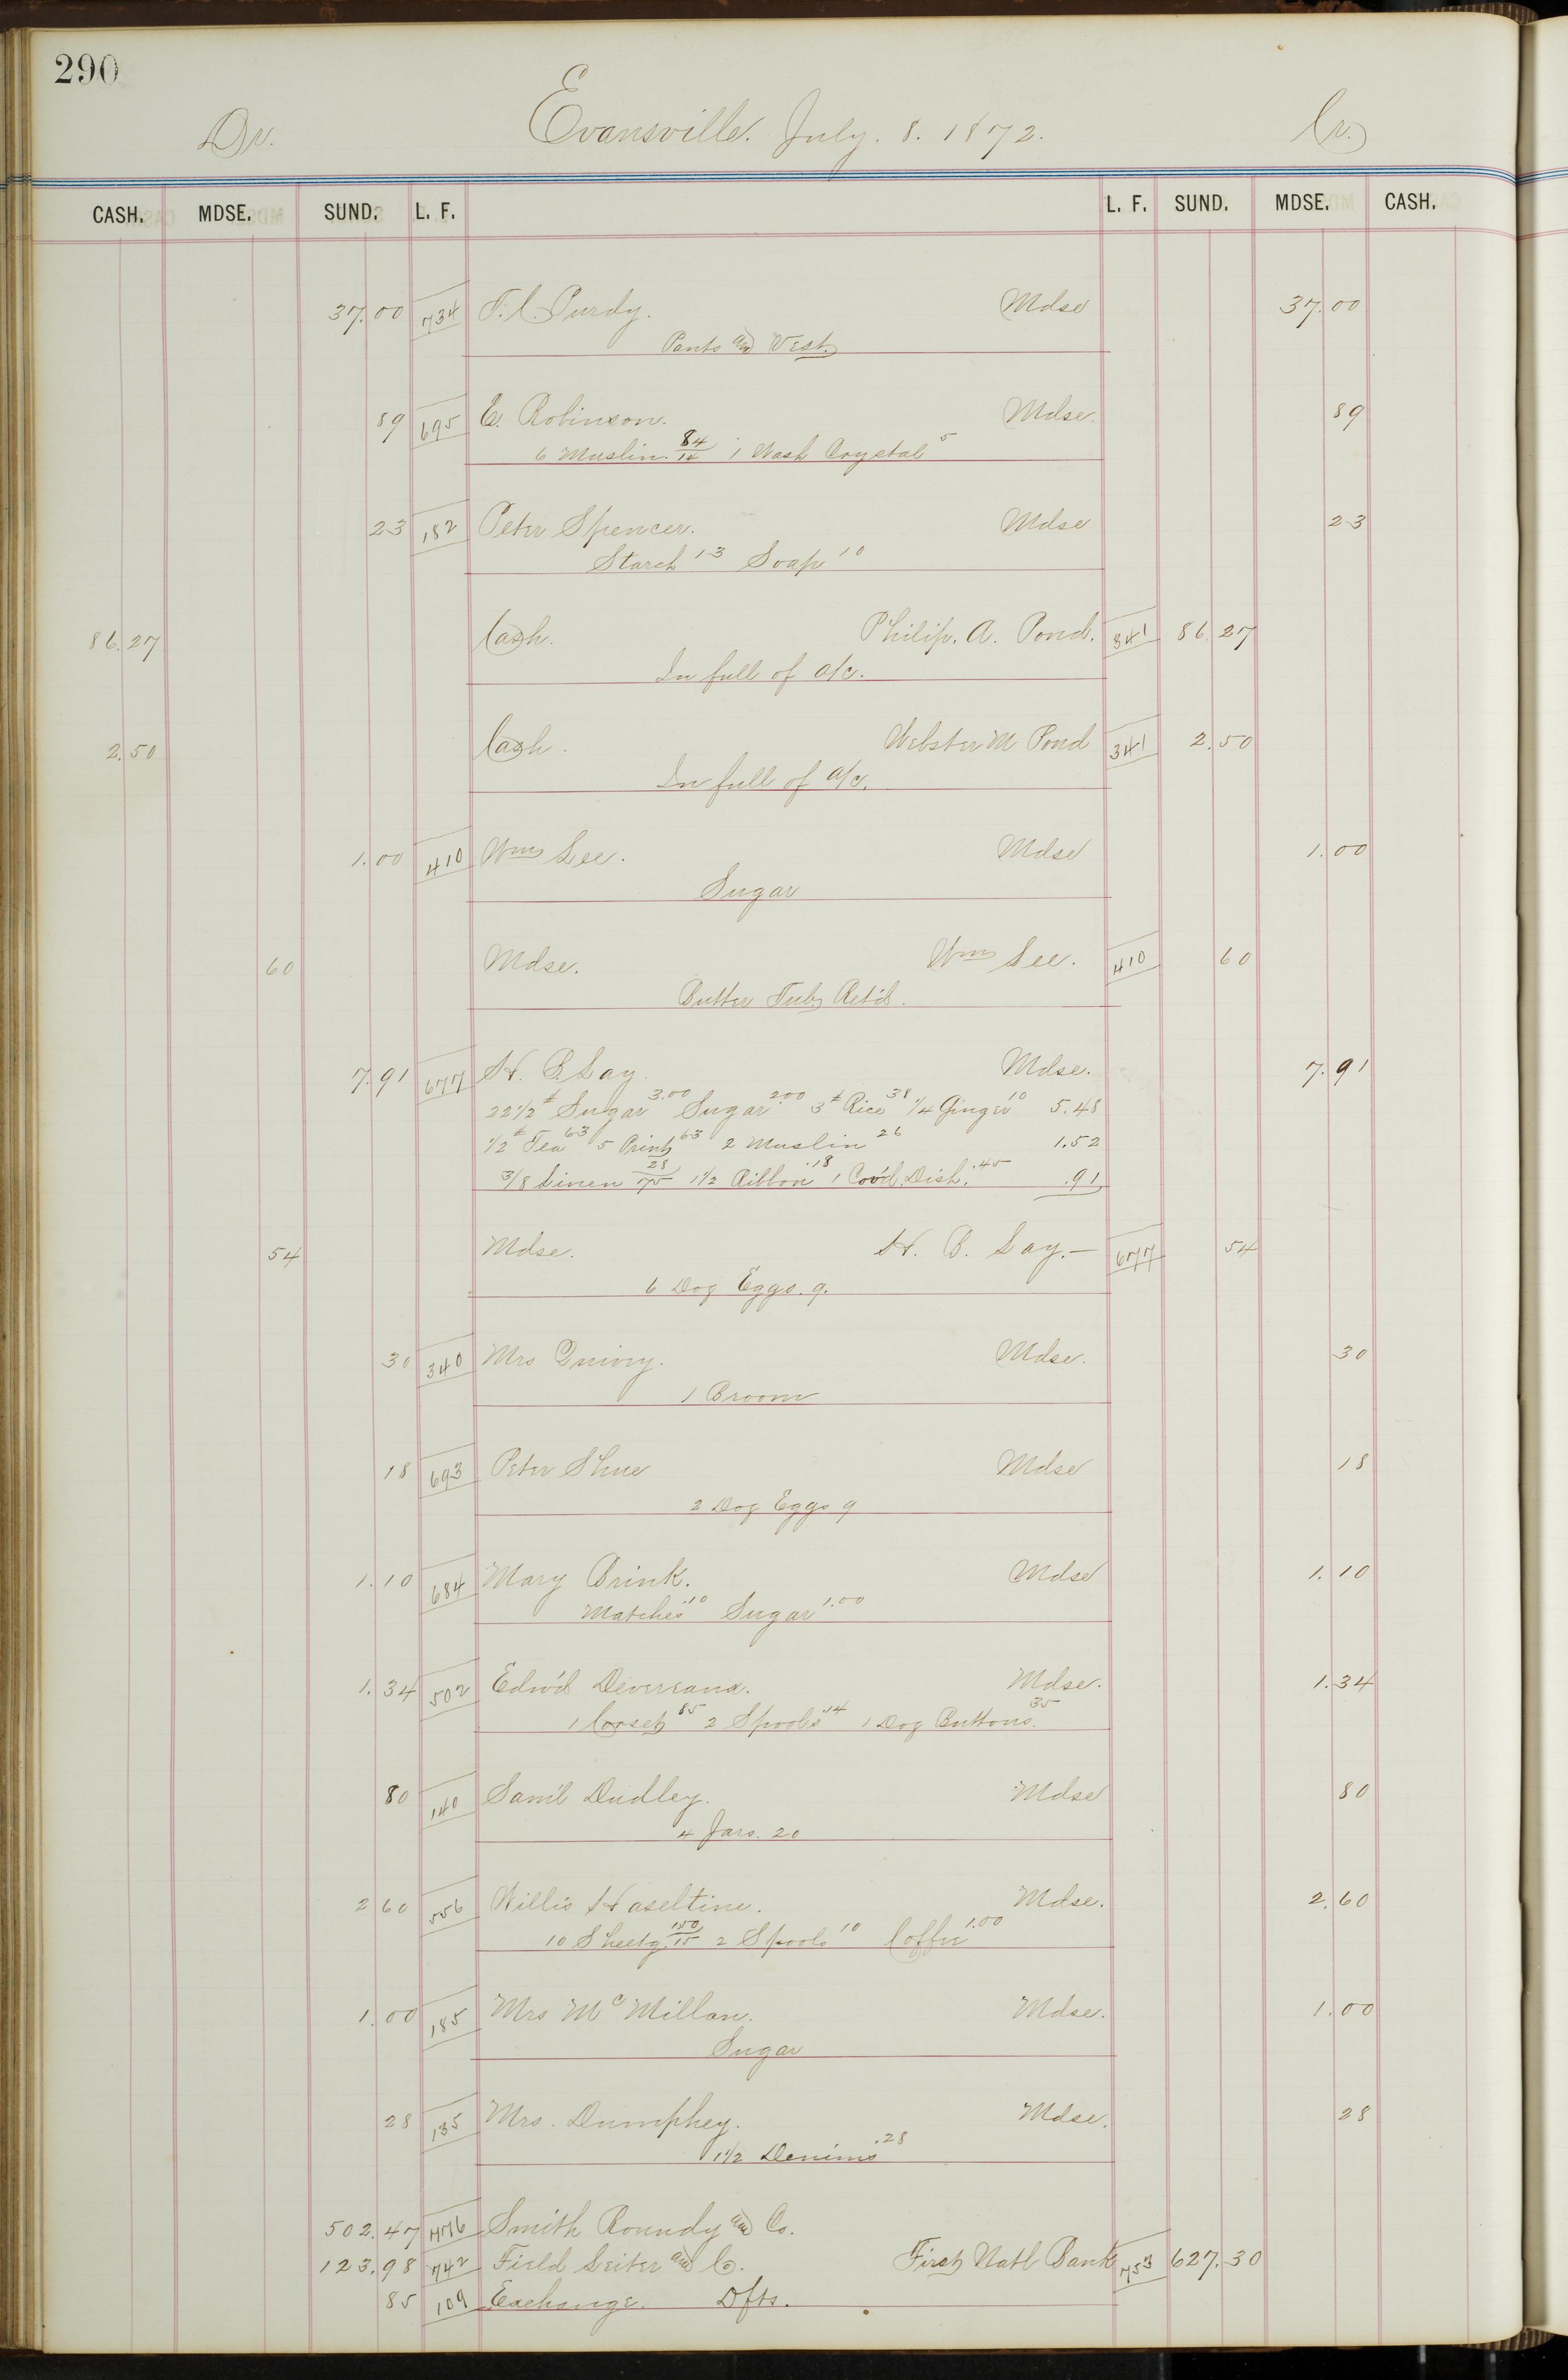 290
Dr. Evansville. July. 8. 1872. Cr.
CASH. MDSE. SUND. L. F. L. F. SUND. MDSE. CASH.
37.00 734 T. C. Purdy. Mdse 37.00
Pants and Vest.
89 695 E. Robinson. Mdse. 89
6 Muslin. 84/14 1 Wash Crystal 5
23 182 Peter Spencer. Mdse 23
Starch 13 Soap 10
86.27 Cash. Philip. A. Pond. 341 86.27
In full of a/c.
2.50 Cash. Webster M Pond 341 2.50
In full of a/c.
1.00 410 Wm Lee. Mdse 1.00
Sugar
60 Mdse. Wm Lee. 410 60
Butter Tub Ret'd.
7.91 677 H. B. Lay. Mdse. 7.91
22 1/2 # Sugar 3.00 Sugar 2.00 3 # Rice 38 1/4 Ginger 10 5.48
1/2 # Tea 63 5 Print 63 2 Muslin 26 1.52
3/8 Linen 28/75 1 1/2 Ribbon .18 1 Cov'd. Dish. .45 .91
54 Mdse. H. B. Lay.— 677 54
6 Doz Eggs. 9.
30 340 Mrs Quivey. Mdse. 30
1 Broom
18 693 Peter Shue Mdse 18
2 Doz Eggs 9
1.10 684 Mary Brink. Mdse 1.10
Matches .10 Sugar 1.00
1.34 502 Edw'd Devereaux. Mdse. 1.34
1 Corset 85 2 Spools .14 1 Doz Buttons. 35
80 140 Sam'l Dudley. Mdse 80
4 Jars. 20
2 60 556 Willis Haseltine. Mdse. 2.60
10 Sheetg. 150/15 2 Spools 10 Coffee 1.00
1.00 185 Mrs McMillan. Mdse. 1.00
Sugar
28 135 Mrs. Dumphey. Mdse. 28
1 1/2 Denims .28
502.47 776 Smith Roundy and Co.
123.98 742 Field Leiter and Co. First Natl Bank 753 627.30
85 109 Exchange. Dfts.